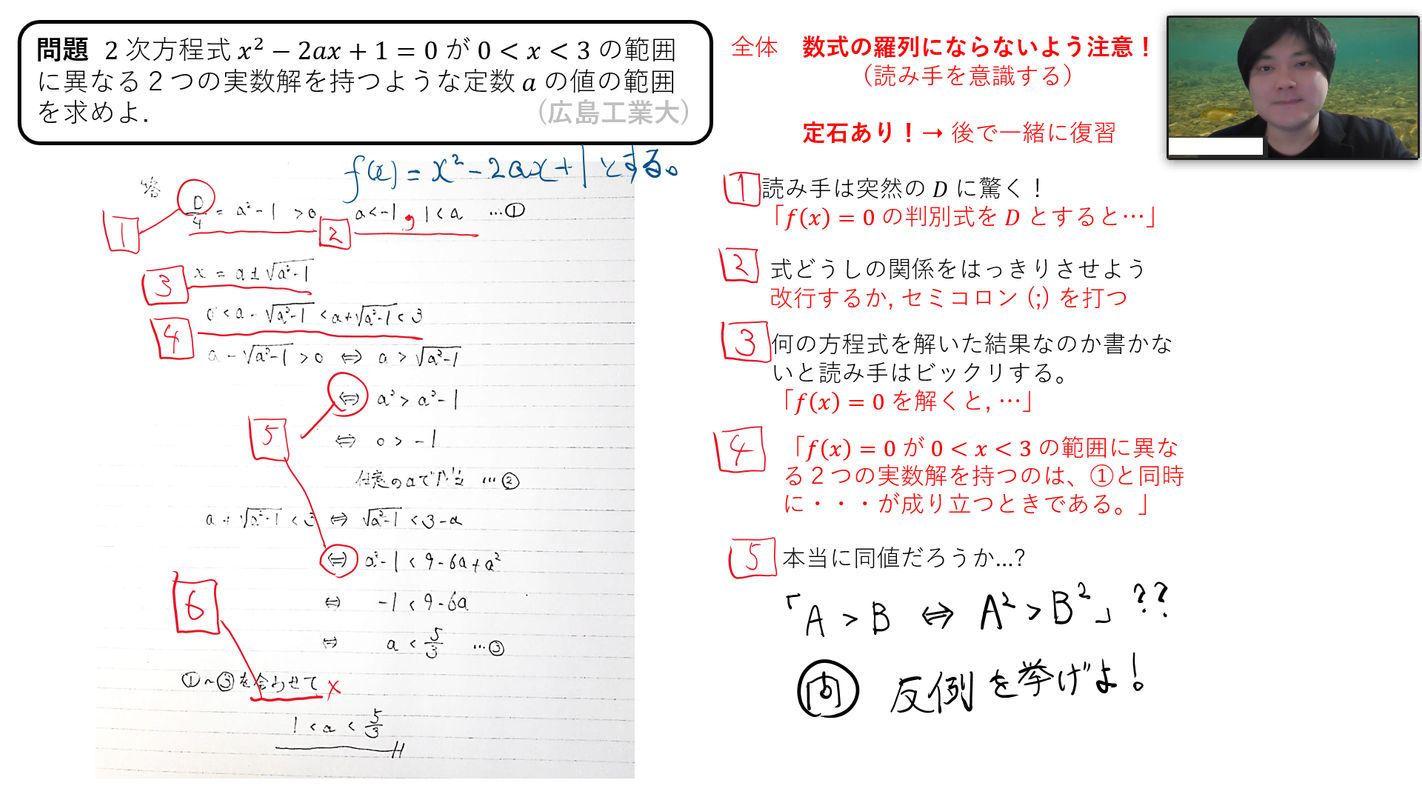 問題 2次方程式 x² − 2ax + 1 = 0 が 0 < x < 3 の範囲
に異なる2つの実数解を持つような定数 a の値の範囲
を求めよ.
(広島工業大)
f(x) = x² − 2ax + 1 とする。
D/4 = a² − 1 > 0 a < −1 , 1 < a …①
1
2
x = a ± √(a² − 1)
3
0 < a − √(a² − 1) < a + √(a² − 1) < 3
4
a − √(a² − 1) > 0 ⇔ a > √(a² − 1)
⇔ a² > a² − 1
5
⇔ 0 > −1
任意のaで …②
a + √(a² − 1) < 3 ⇔ √(a² − 1) < 3 − a
⇔ a² − 1 < 9 − 6a + a²
6
⇔ −1 < 9 − 6a
⇔ a < 5/3 …③
①〜③を合わせて ×
1 < a < 5/3
全体 数式の羅列にならないよう注意!
(読み手を意識する)
定石あり!→ 後で一緒に復習
1 読み手は突然の D に驚く!
「f(x) = 0 の判別式を D とすると…」
2 式どうしの関係をはっきりさせよう
改行するか, セミコロン (;) を打つ
3 何の方程式を解いた結果なのか書かな
いと読み手はビックリする。
「f(x) = 0 を解くと, …」
4 「f(x) = 0 が 0 < x < 3 の範囲に異な
る2つの実数解を持つのは、①と同時
に・・・が成り立つときである。」
5 本当に同値だろうか...?
「A > B ⇔ A² > B²」??
問 反例を挙げよ!